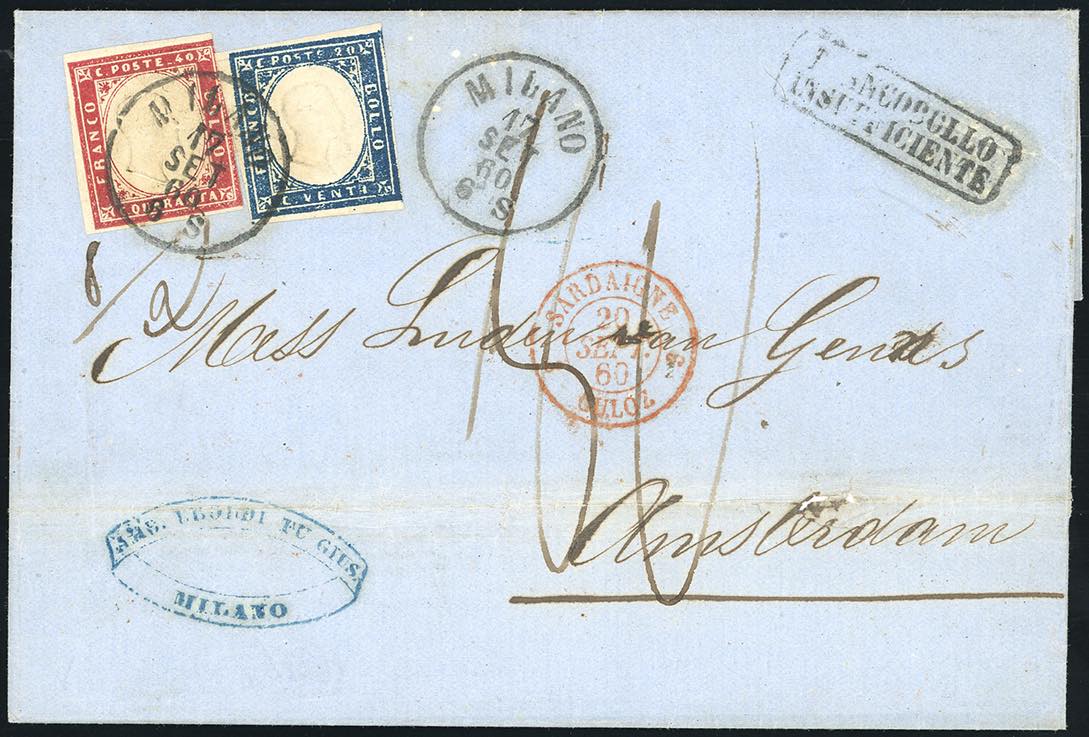 C. POSTE. 40
FRANCO
BOLLO
QUARANTA
C. POSTE. 20
FRANCO
BOLLO
C. VENTI
MILANO
17
SET
60
6 S
MILANO
17
SET
60
6 S
FRANCOBOLLO
INSUFFICIENTE
8/2
SARDAIGNE
20
SEPT.
60
CULOZ
Mess Luden van
Amsterdam
FU GIUS.
MILANO